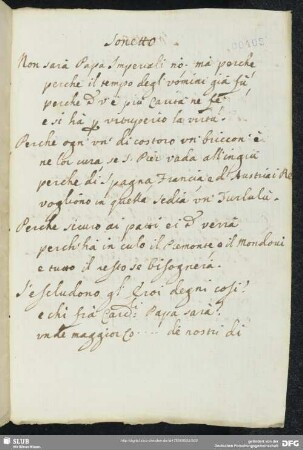 Sonetto
Non sarà Papa Imperiali nò. mà perche
perche il tempo degl'uomini già fù
perche è più carità ne fè
e si hà vituperio la virtù
Perche ogn'un di costoro un briccon è
ne lor cura se S. Pier vada all'ingiù
perche di Spagna Francia e d'Austria i Rè
vogliono in quella Sedia un Turlulù.
Perche sicuro ai patti ei verrà
perch'hà in culo il Piemonte o il Mondoui
e tutto il resto se bisognerà.
S'escludono gl'Eroi degni così?
e chi frà Card.i Papa sarà?
un de maggior C.... de nostri dì